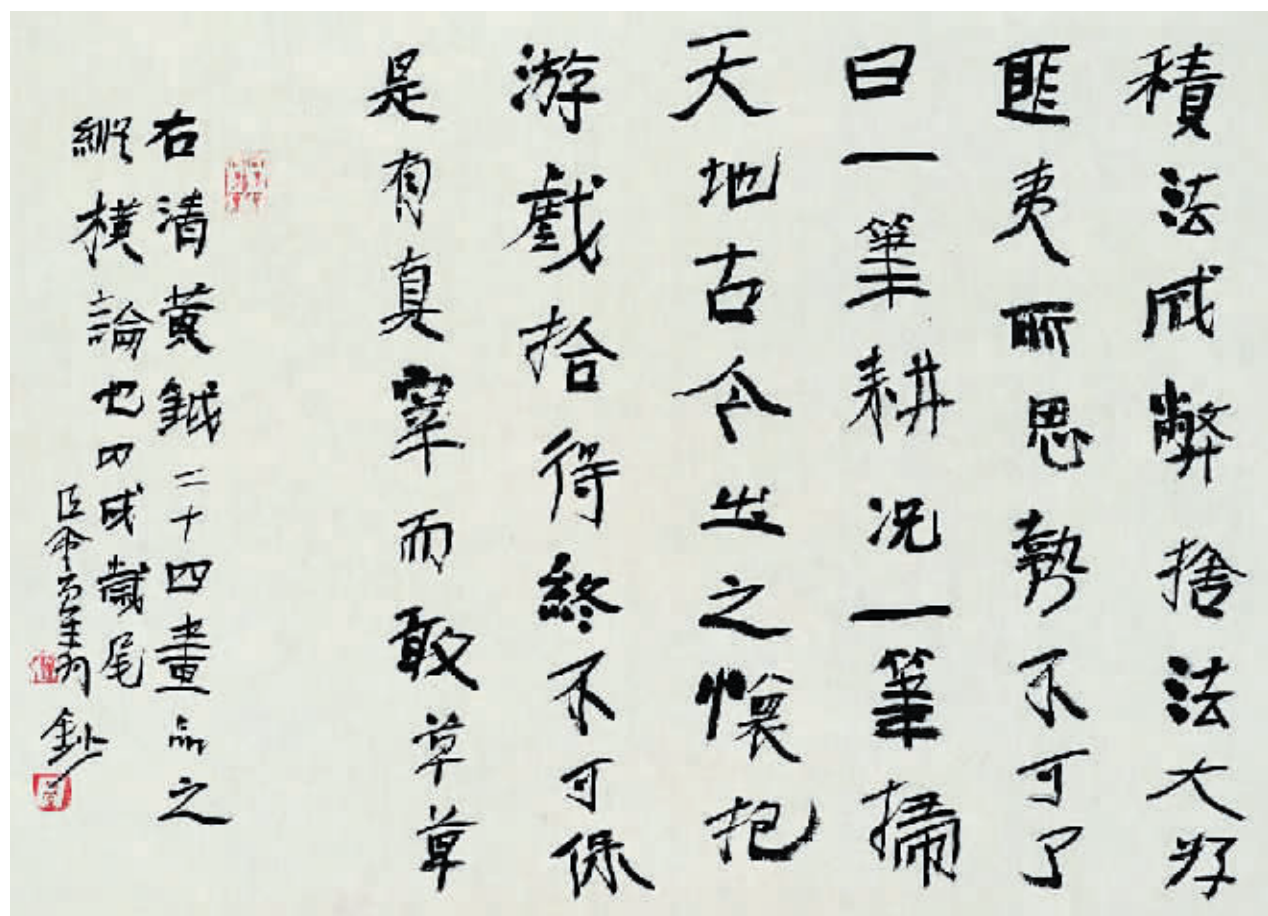 積法成弊捨法大好
匪夷所思勢不可了
曰一筆耕況一筆掃
天地古今出之懷抱
游戲拾得終不可保
是有真宰而敢草草
右清黄鉞二十四畫品之
縱横論也四戌歲尾
鈔